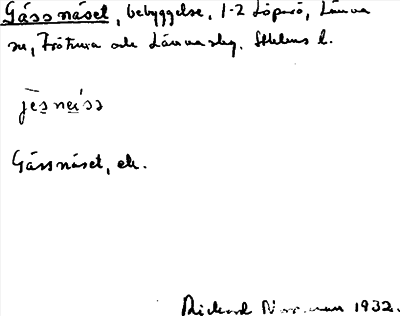 Gåssnäset, bebyggelse, 1-2 Löparö, Länna
sn, Frötuna och Länna skg. Sthlms l.
Gåssnäset, ek.
Rickard 1932.